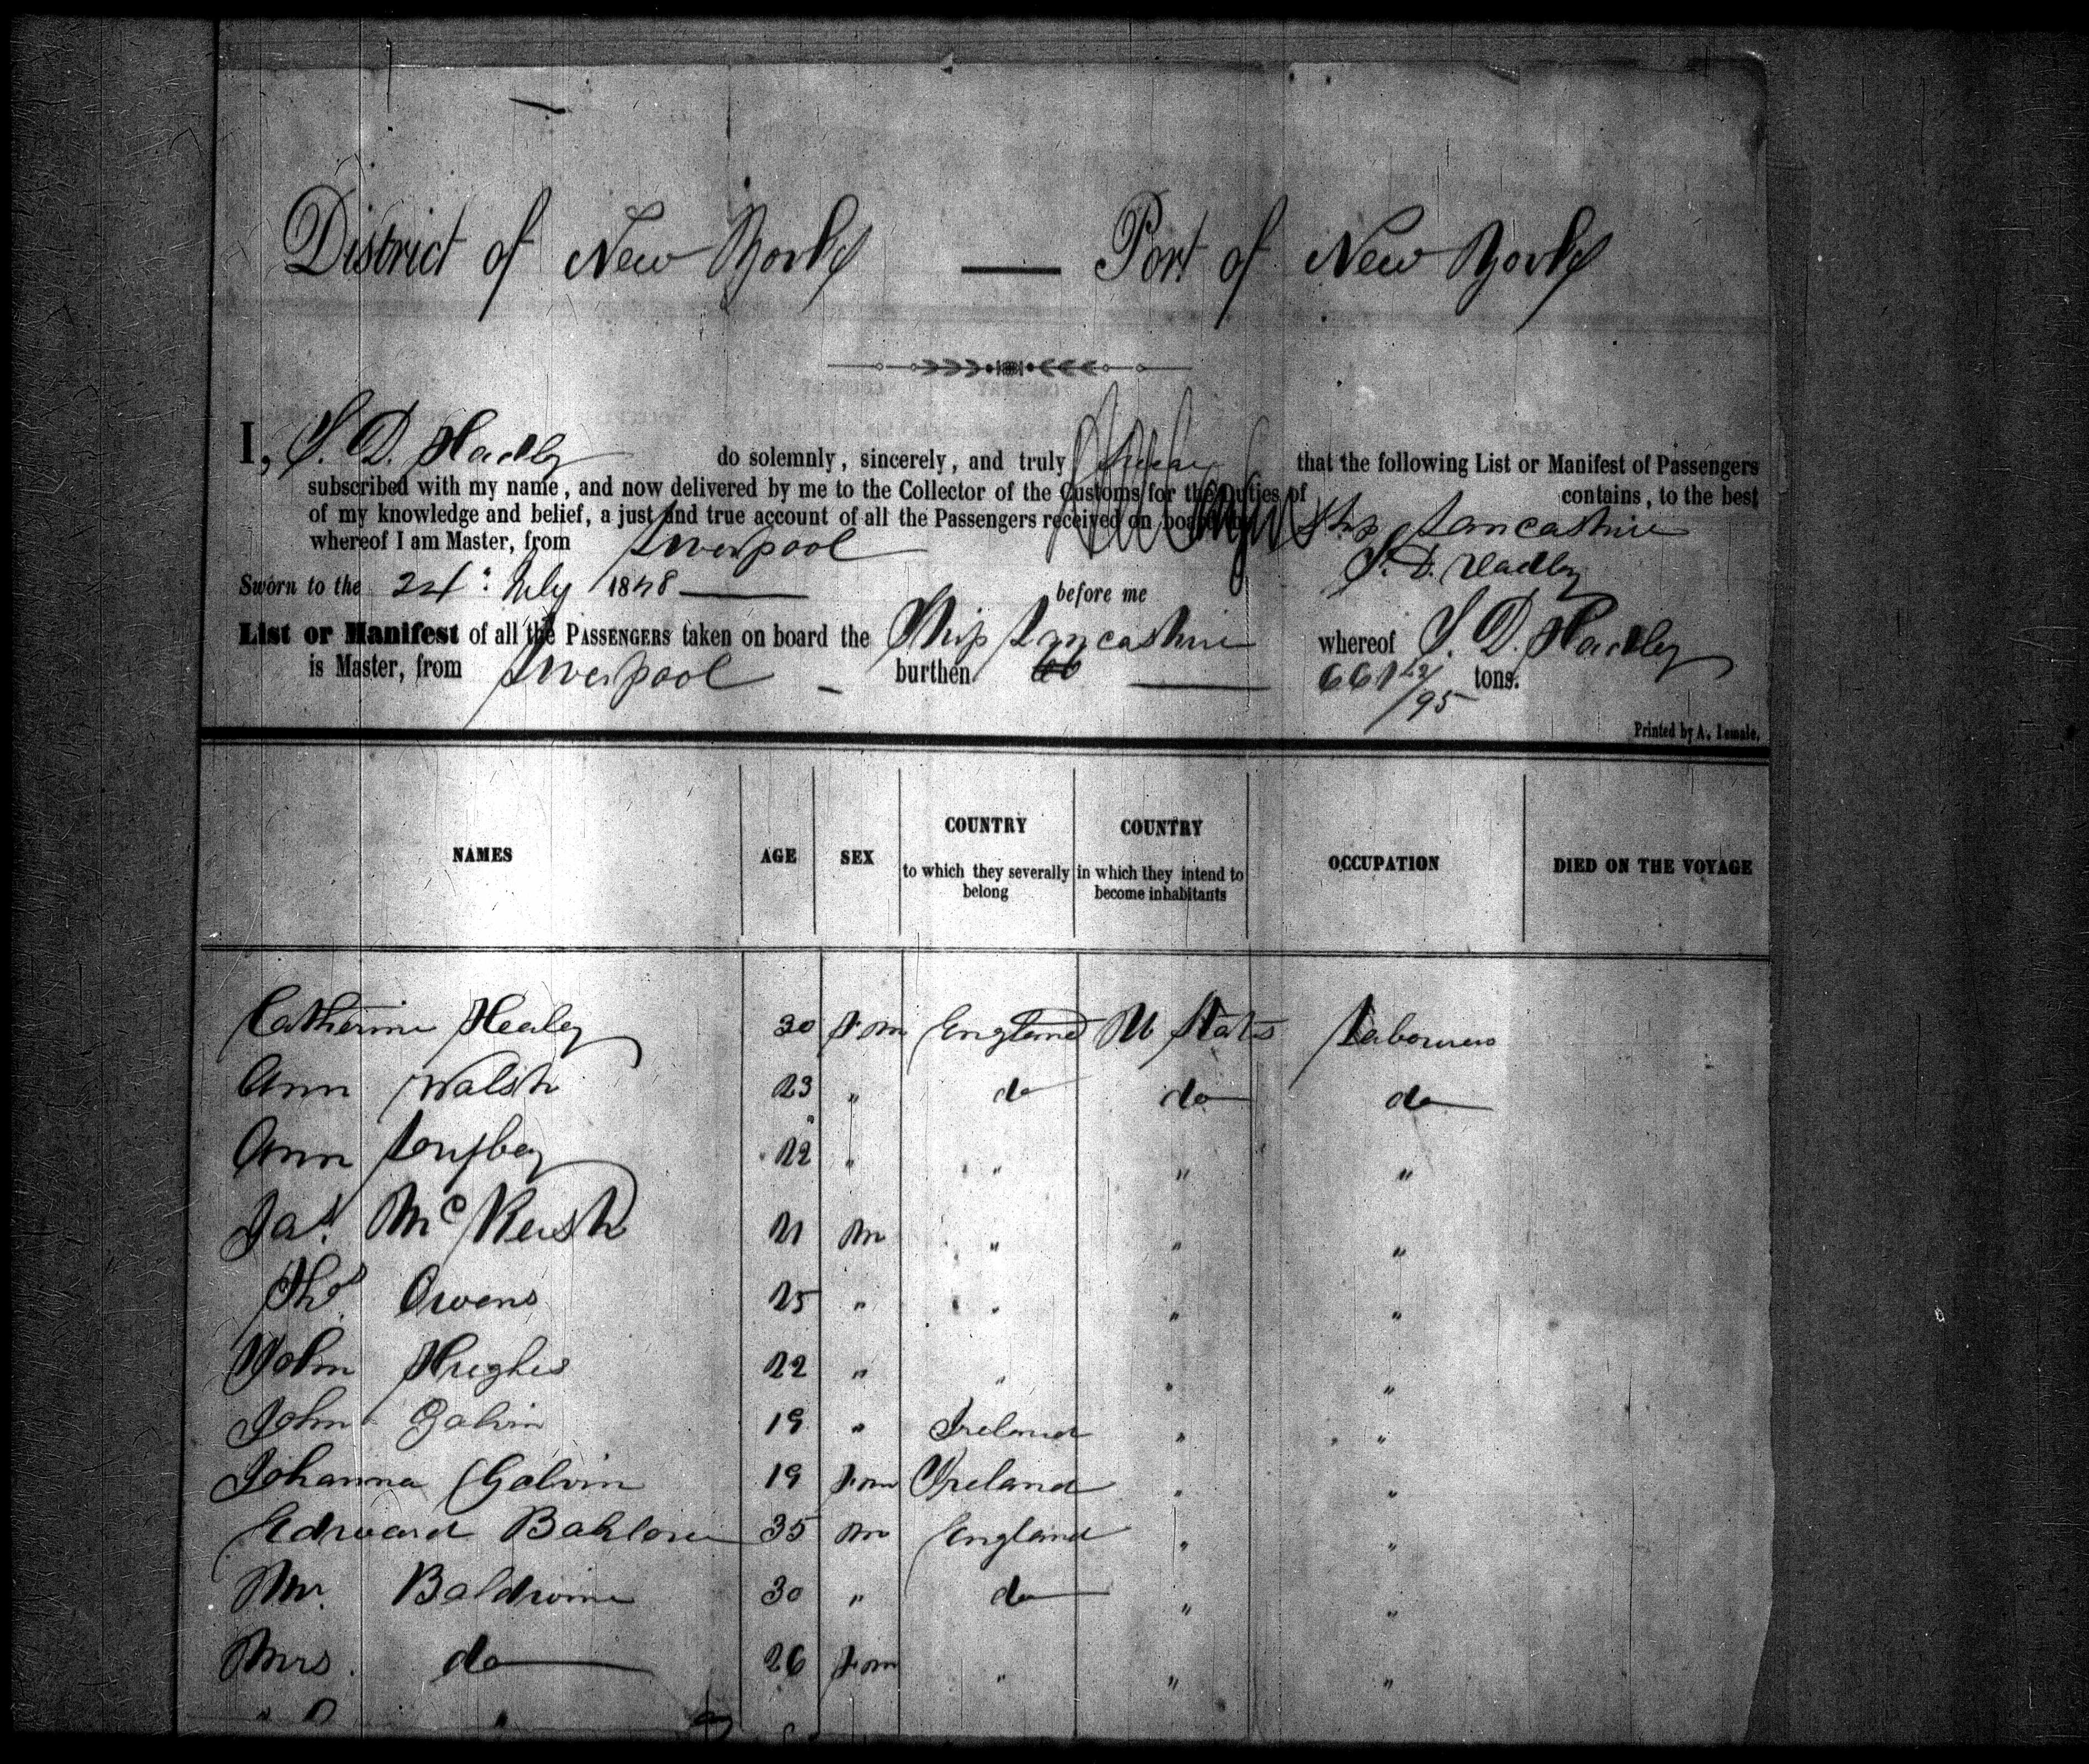 District of New York — Port of New York
I, S. D. Hadley do solemnly, sincerely, and truly swear that the following List or Manifest of Passengers
subscribed with my name, and now delivered by me to the Collector of the Customs for the Duties of contains, to the best
of my knowledge and belief, a just and true account of all the Passengers received on board the Ship Lancashire
whereof I am Master, from Liverpool S. D. Hadley
Sworn to the 24th July 1848 before me
List or Manifest of all the PASSENGERS taken on board the Ship Lancashire whereof S. D. Hadley
is Master, from Liverpool burthen 661 tons.
/95
Printed by A.
NAMES AGE SEX COUNTRY to which they severally belong COUNTRY in which they intend to become inhabitants OCCUPATION DIED ON THE VOYAGE
Catherine Healey 30 Fm England U States Labourers
Ann Walsh 23 " do do do
Ann 22 " " " "
Jas. McKeish 21 m " " "
Thos Owens 25 " " " "
John Hughes 22 " " " "
John Galvin 19 " Ireland " "
Johanna Galvin 19 Fm Ireland " "
Edward 35 m England " "
Mr. Baldwine 30 " do " "
Mrs. do 26 Fm " " "